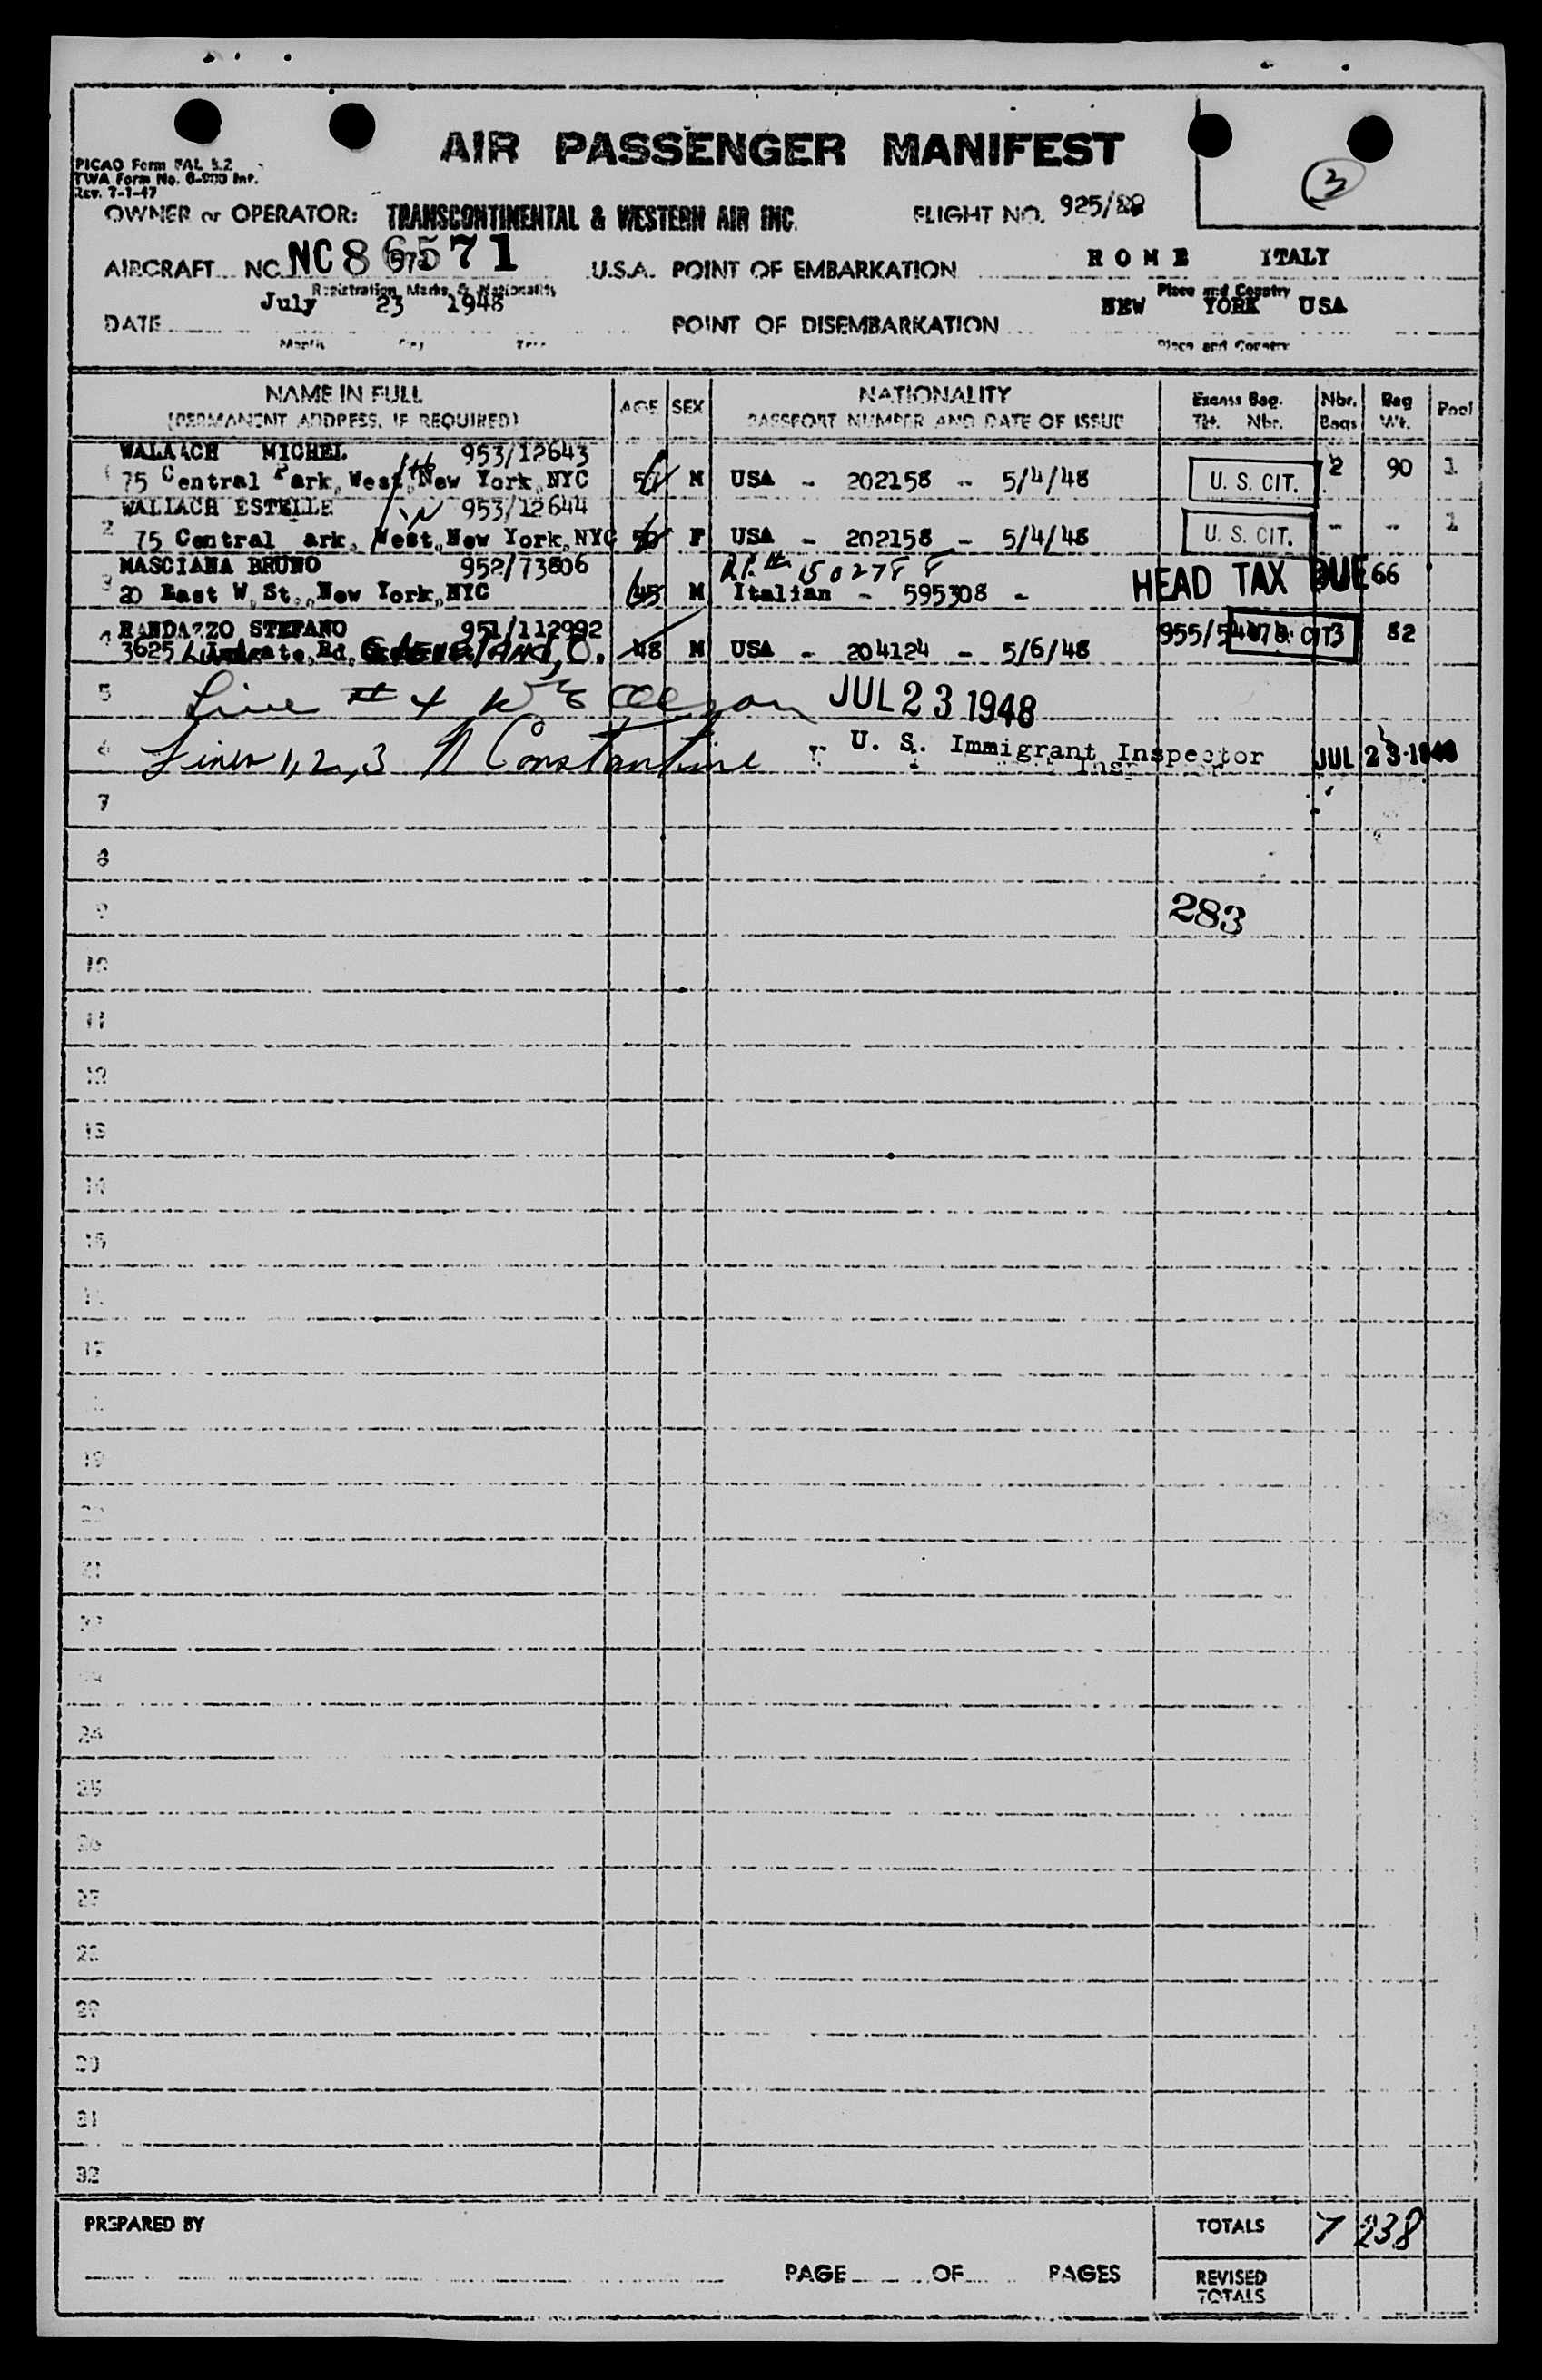 AIR PASSENGER MANIFEST
3
PICAO Form FAL 5.2
TWA Form No. Int.
Rev. 7-1-47
OWNER or OPERATOR: TRANSCONTINENTAL & WESTERN AIR INC. FLIGHT NO. 925/
AIRCRAFT NC NC86571 U.S.A. POINT OF EMBARKATION ROME ITALY
Registration Marks & Nationality Place and Country
DATE July 23 1948 POINT OF DISEMBARKATION NEW YORK USA
Month Day Year Place and Country
NAME IN FULL AGE SEX NATIONALITY Excess Bag. Nbr. Bag Pool
(PERMANENT ADDRESS, IF REQUIRED) PASSPORT NUMBER AND DATE OF ISSUE Tkt. Nbr. Bags Wt.
WALAACH MICHEL 953/12643
75 Central Park, West, New York, NYC M USA - 202158 - 5/4/48 U. S. CIT. 2 90 1
WALLACH ESTELLE 953/12644
2 75 Central ark, West, New York, NYC 50 F USA - 202158 - 5/4/48 U. S. CIT. - - 1
MASCIANA BRUNO 952/73806 R.P.# 150278 8
3 20 East W. St., New York, NYC 45 M Italian - 595308 - HEAD TAX DUE 66
4 RANDAZZO STEFANO 951/112992 955/ 3 82
3625 Rd, CLEVELAND, O. 48 M USA - 204124 - 5/6/48
5 Line # 4 JUL 23 1948
6 Lines 1, 2, 3 N Constantine U. S. Immigrant Inspector JUL 23 1948
7
8
9 283
10
11
12
13
14
15
17
19
21
24
25
26
27
28
29
30
31
32
PREPARED BY TOTALS 7 238
PAGE OF PAGES REVISED
TOTALS